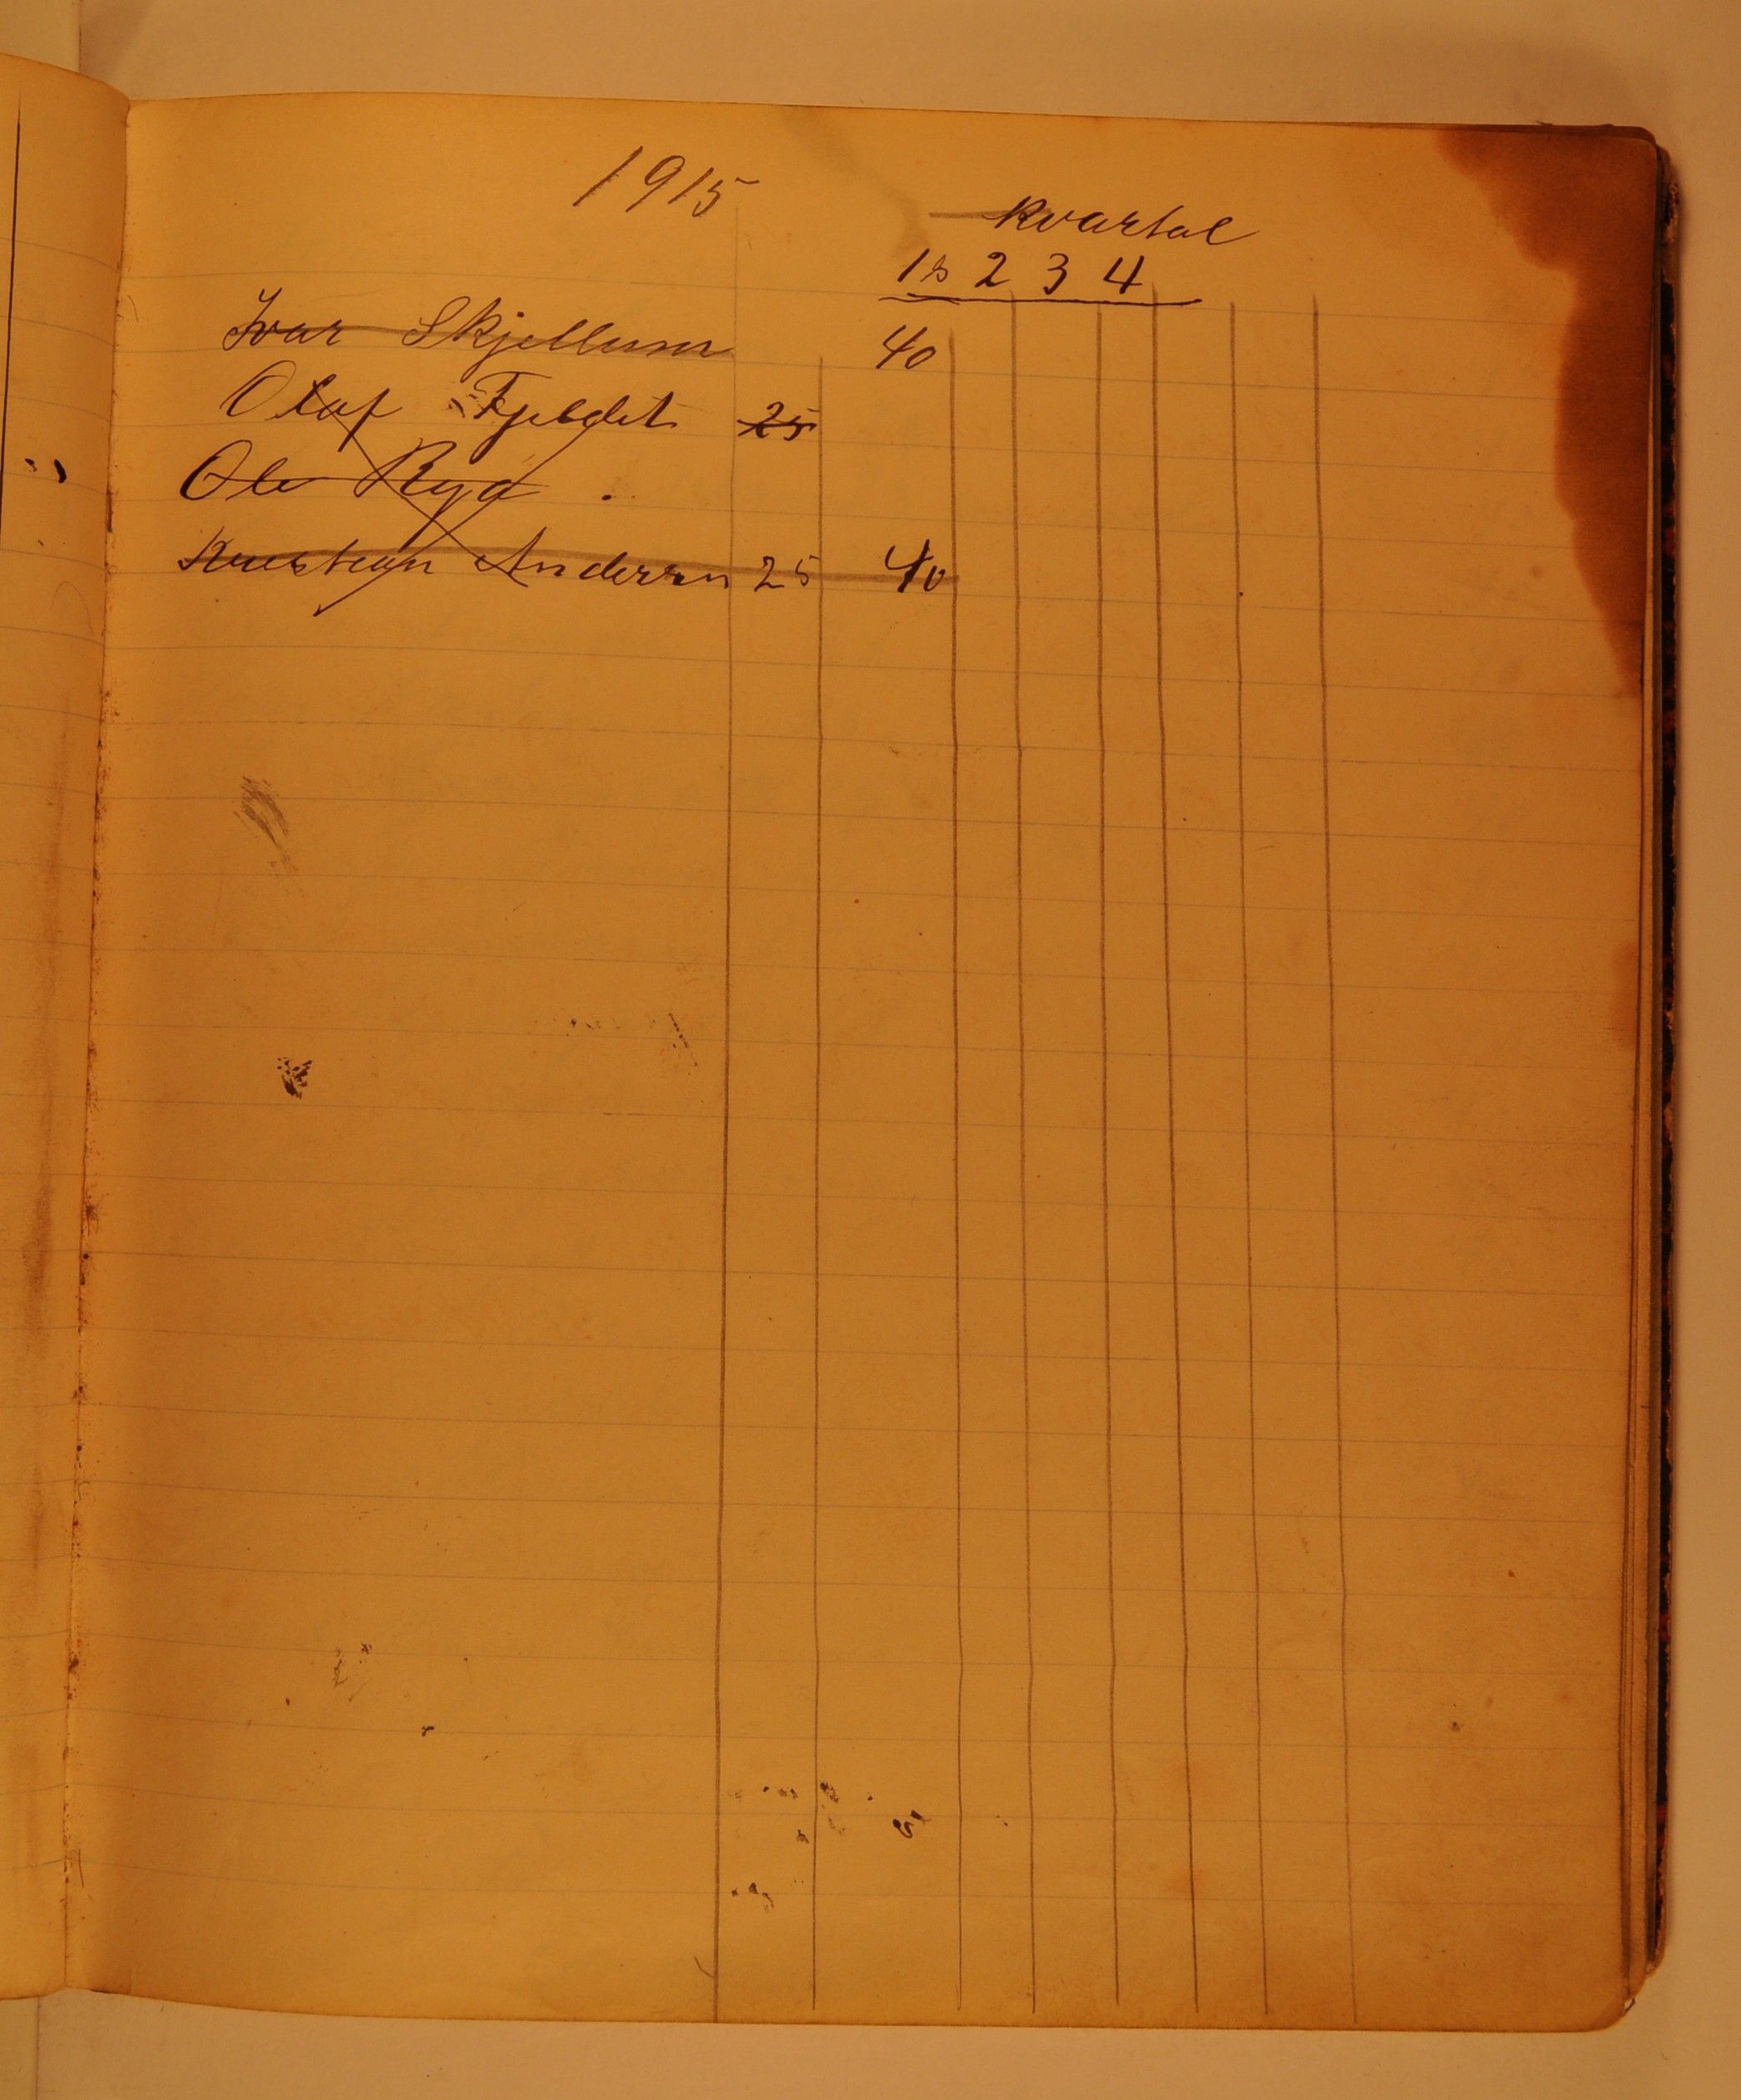 1915
Kvartal
1s 2 3 4
Ivar Skjellum 40
Olaf Fjeldet 25
Ole Rya
Kristian Andersn 25 40